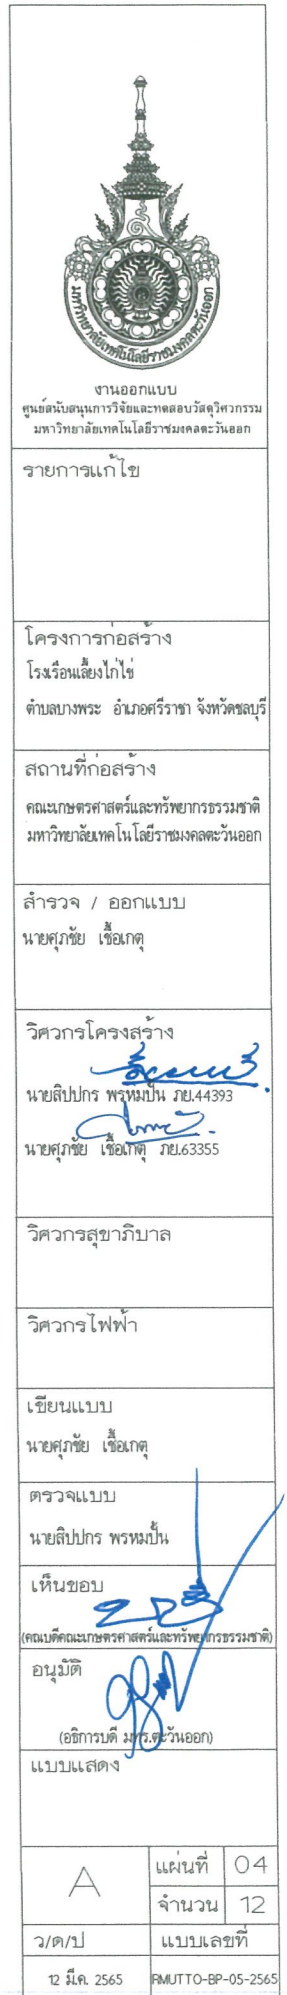 มหาวิทยาลัยเทคโนโลยีราชมงคลตะวันออก
งานออกแบบ
ศูนย์สนับสนุนการวิจัยและทดสอบวัสดุวิศวกรรม
มหาวิทยาลัยเทคโนโลยีราชมงคลตะวันออก
รายการแก้ไข
โครงการก่อสร้าง
โรงเรือนเลี้ยงไก่ไข่
ตำบลบางพระ อำเภอศรีราชา จังหวัดชลบุรี
สถานที่ก่อสร้าง
คณะเกษตรศาสตร์และทรัพยากรธรรมชาติ
มหาวิทยาลัยเทคโนโลยีราชมงคลตะวันออก
สำรวจ / ออกแบบ
นายศุภชัย เชื้อเกตุ
วิศวกรโครงสร้าง
นายสิปปกร พรหมปั้น ภย.44393
นายศุภชัย เชื้อเกตุ ภย.63355
วิศวกรสุขาภิบาล
วิศวกรไฟฟ้า
เขียนแบบ
นายศุภชัย เชื้อเกตุ
ตรวจแบบ
นายสิปปกร พรหมปั้น
เห็นชอบ
(คณบดีคณะเกษตรศาสตร์และทรัพยากรธรรมชาติ)
อนุมัติ
(อธิการบดี มทร.ตะวันออก)
แบบแสดง
A
แผ่นที่ 04
จำนวน 12
ว/ด/ป แบบเลขที่
12 มี.ค. 2565 RMUTTO-BP-05-2565